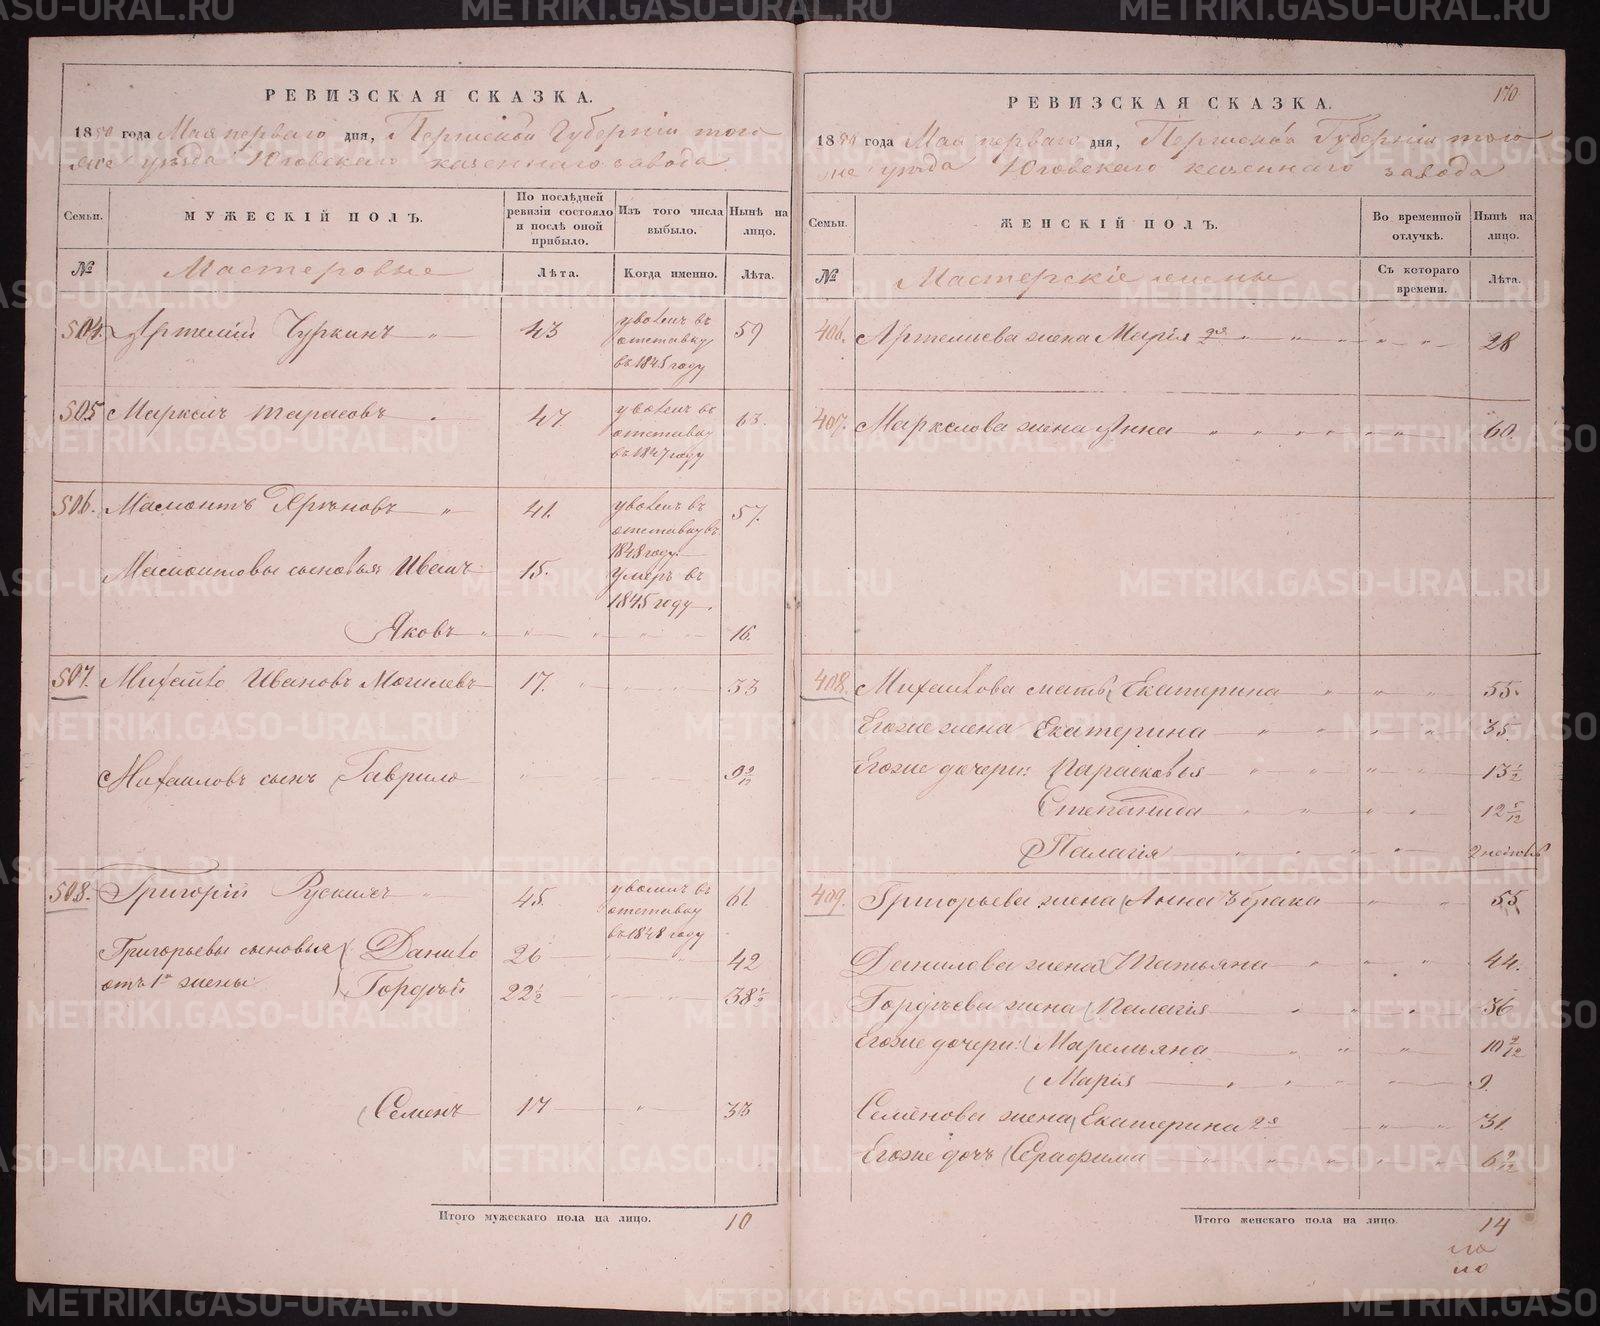 РЕВИЗСКАЯ СКАЗКА.
1850 года Мая перваго дня, Пермской Губерніи того
же уѣзда Юговскаго казеннаго завода
Семьи.
МУЖЕСКІЙ ПОЛЪ.
По послѣдней ревизіи состояло и послѣ оной прибыло.
Изъ того числа выбыло.
Нынѣ на лицо.
№
Мастеровые
Лѣта.
Когда именно.
Лѣта.
504. Артемій Чуркинъ 43 уволенъ въ отставку въ 1845 году 59
505 Маркелъ Тарасовъ 47. уволенъ въ отставку въ 1847 году 63.
506. Мамонтъ 41. уволенъ въ отставку въ 1848 году. 57.
Мамонтовы сыновья Иванъ 15. умеръ въ 1845 году.
Яковъ 16.
507. Михайло Ивановъ Могилевъ 17. 33
Михаиловъ сынъ Гаврило 9 9/12
508. Григорій Рускихъ 45. уволенъ въ отставку въ 1848 году 61.
Григорьевы сыновья Данило 26 42
отъ 1й жены Гордѣй 22½ 38½
Семенъ 17 33
Итого мужескаго пола на лицо. 10
170
РЕВИЗСКАЯ СКАЗКА.
1850 года Мая перваго дня, Пермской Губерніи того
же уѣзда Юговскаго казеннаго завода
Семьи.
ЖЕНСКІЙ ПОЛЪ.
Во временной отлучкѣ.
Нынѣ на лицо.
№
Мастерскіе жены
Съ котораго времени.
Лѣта.
406. Артемиева жена Марія 2я 28
407. Маркелова жена Анна 60.
408. Михаилова мать Екатерина 55.
Егоже жена Екатерина 35.
Егоже дочери: Парасковья 13½
Степанида 12 5/12
Палагія 2 недѣль
409. Григорьева жена Анна 3 брака 55
Данилова жена Татьяна 44.
Гордѣева жена Палагія 36
Егоже дочери: Маремьяна 10 9/12
Марія 9.
Семёнова жена Екатерина 2я 31.
Егоже дочь Серафима 6 9/12
Итого женскаго пола на лицо. 14
METRIKI.GASO-URAL.RU